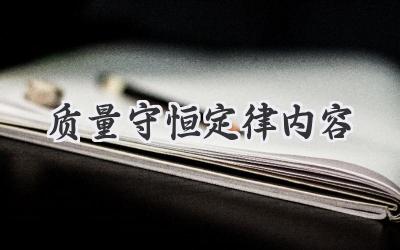 质量守恒定律内容